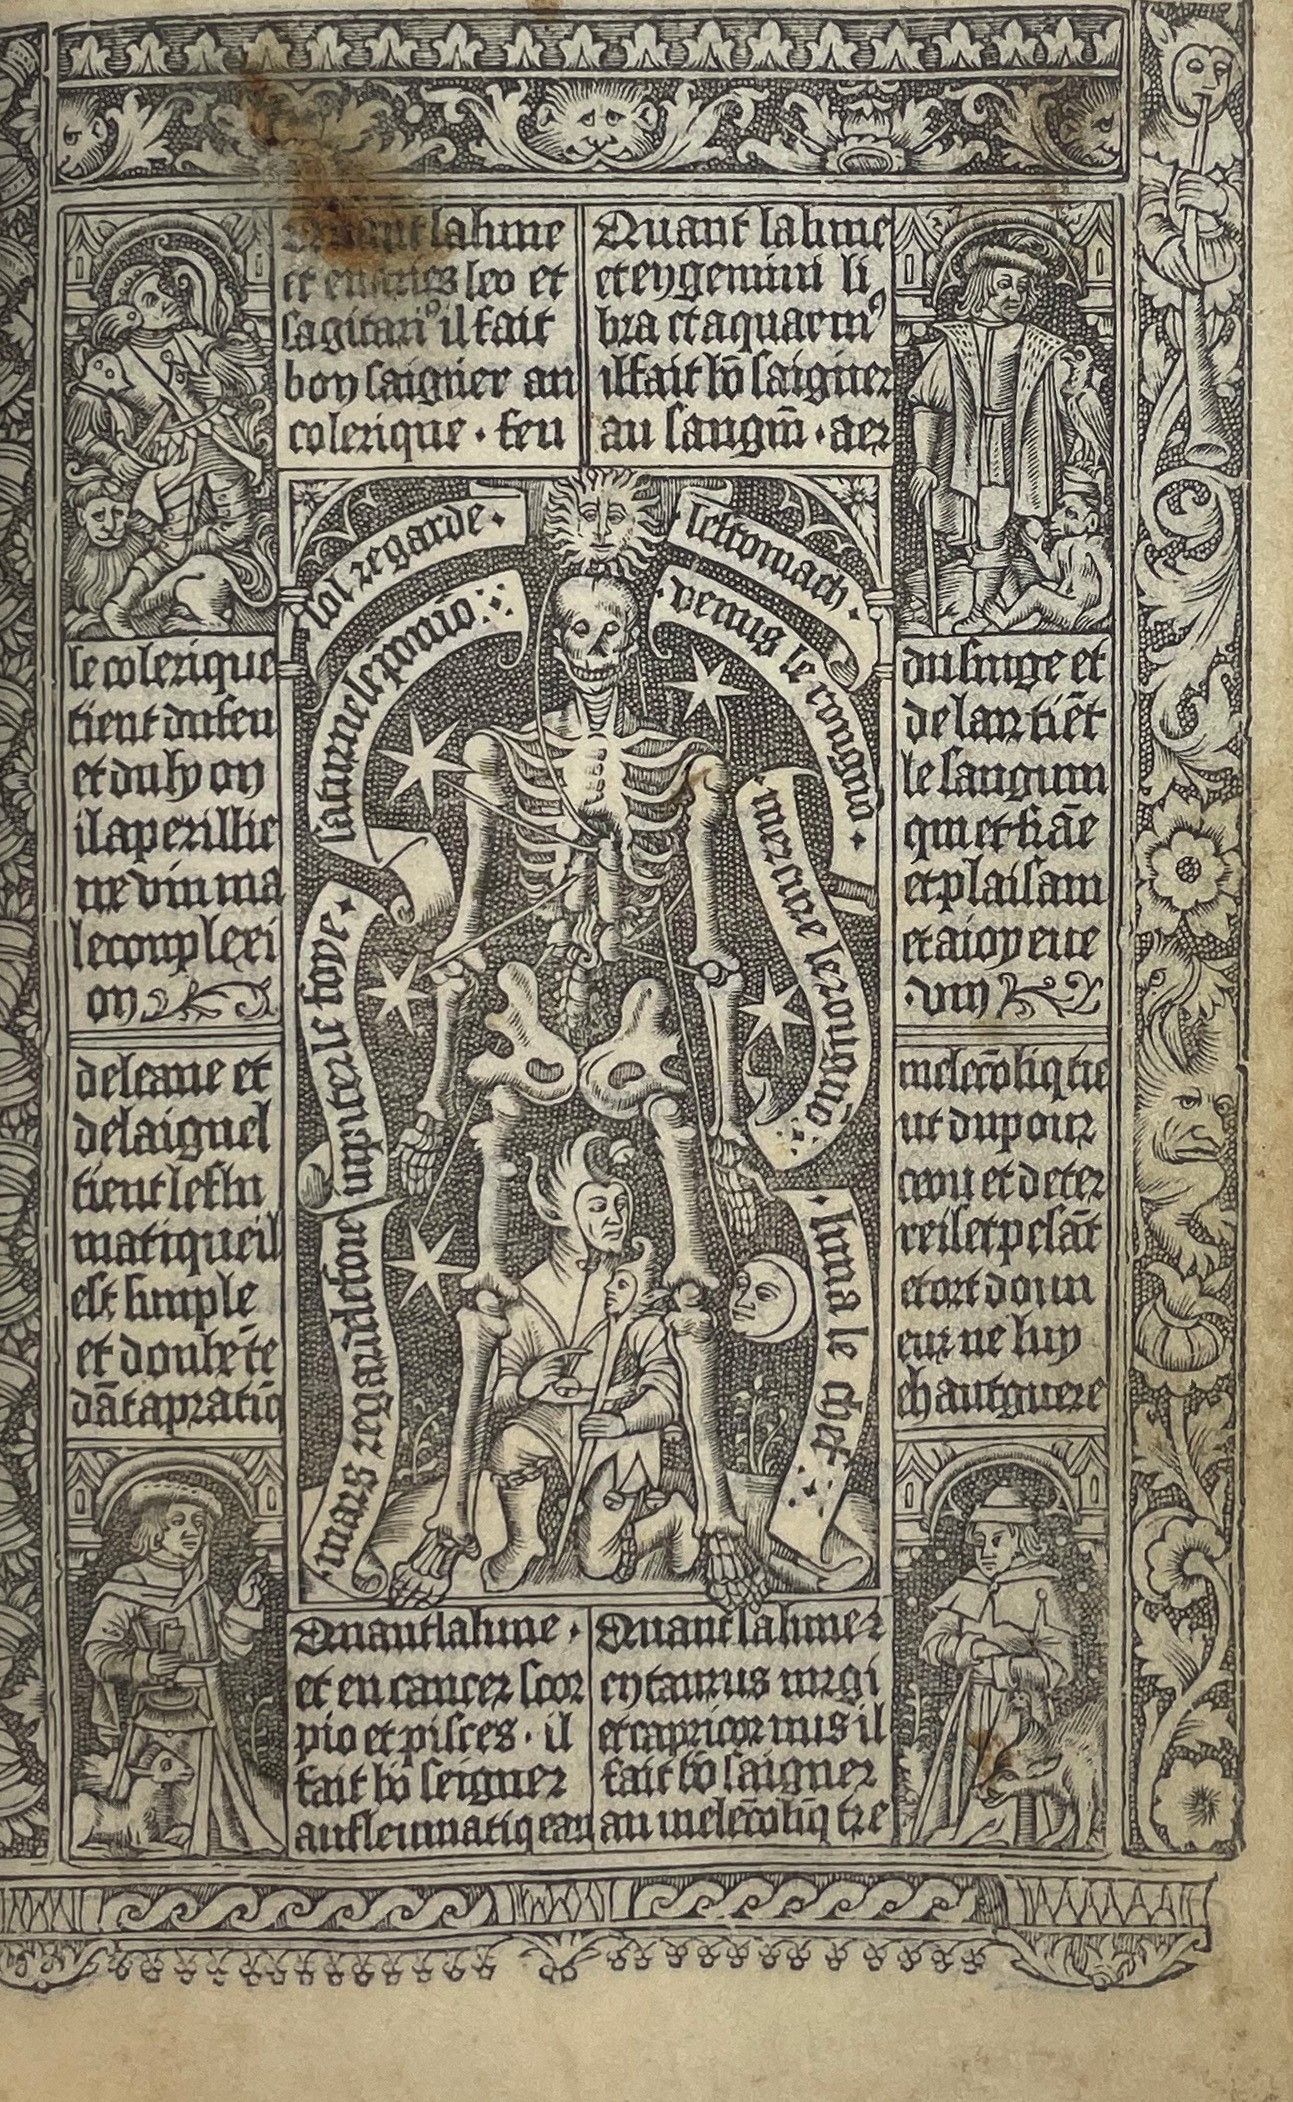 Quant la lune
et en aries leo et
sagitariꝰ il fait
bon saignier au
colerique · feu
Quant la lune
et en gemini li
bra et aquariuꝰ
il fait bō saigner
au sanguī · aer
sol regarde
lestomach ·
saturne le pomō
venus le rongnō ·
mercure le rougnō
iupiter le foye
mars regard le foie
luna le chef
le colerique
tient du feu
et du lyon
il a perillie
ue vin ma
le complexi
on
du singe et
de lair tiēt
le sanguin
qui et frāc
et plaisam
et a ioyeue
· vin
de leaue et
de laignel
tient le flu
matique il
est simple
et doubē te
dāt a pratiq̄
melēcoliq tie
nt du pour
ceau et de ter
re il et pesāt
et ort donn
eur ne luy
chaut guere
Quant la lune ·
et en cancer scor
pio et pisces · il
fait bō seigner
au fleumatiq eau
Quant la lune e
en taurus uirgi
et capricornus il
fait bō saigner
au melēcoliq tre